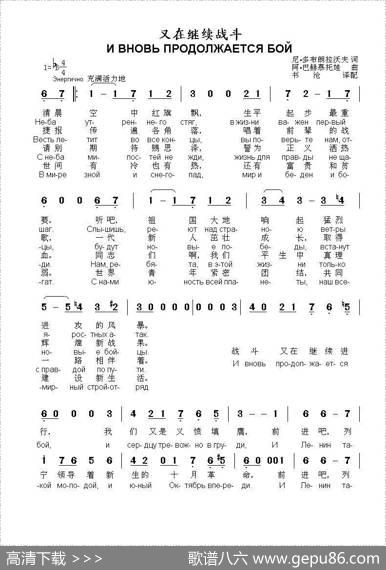 又在继续战斗
И ВНОВЬ ПРОДОЛЖАЕТСЯ БОЙ
尼·多布朗拉沃夫 词
阿·巴赫慕托娃 曲
书 沧 译配
Энергично 充满活力地
清 晨 空 中 红旗 飘, 生平 起 步 最重
Не-ба ут-рен-не-го стяг, в жиз-ни ва-жен пер-вый
捷报 传 遍 各角 落, 唱着 前 辈 的 战
Весть ле-тит во все кон-цы, вы по-верь-те нам, от-
请别 期 待 赐恩 泽, 誓为 正 义 洒热
С не-ба ми-лос-тей не жди, жизнь для прав-ды не ща-
世间 有 冷 也有 热, 还有 富 贵 和 贫
В ми-ре зной и сне-го-пад, мир и бе-ден и бо-
要。 听吧, 祖 国 大地 响 起 猛烈
шаг. Слы-шишь, ре-ют над стра-но-ю вет-ры
歌, 一代 新 人 茁壮 成 长, 取得
-цы, бу-дут но-вы-е по-бе-ды, вста-нут
血。 同志 们 啊, 我们 平 生中 真理
-ди. Нам, ре-бя-та, в э-той жиз-ни толь-ко
弱。 世界 青 年 紧密 团 结, 共同
-гат. С на-ми ю-ность всей пла-не-ты, наш все-
进 攻 的 风 暴。
я-рост-ных а-так.
辉 煌 新 战 果。
но-вы-е бой-цы.
一 路 相 伴 着。
с прав-дой по пу-ти.
建 设 新 生 活。
-мир-ный строй-от-ряд
战 斗 又在 继续 进
И вновь про-дол-жа-ет-ся
行, 我 们 又是 义 愤 填 膺, 前 进吧, 列
бой, и серд-цу тре-вож-но в гру-ди. И Ле-нин та-
宁 领导 着 新 生的 十 月 革 命, 前 进吧, 列
-кой мо-ло-дой, и ю-ный Ок-тябрь впе-ре-ди. И Ле-нин та-
高清下载 >>>
歌谱八六 www.gepu86.com